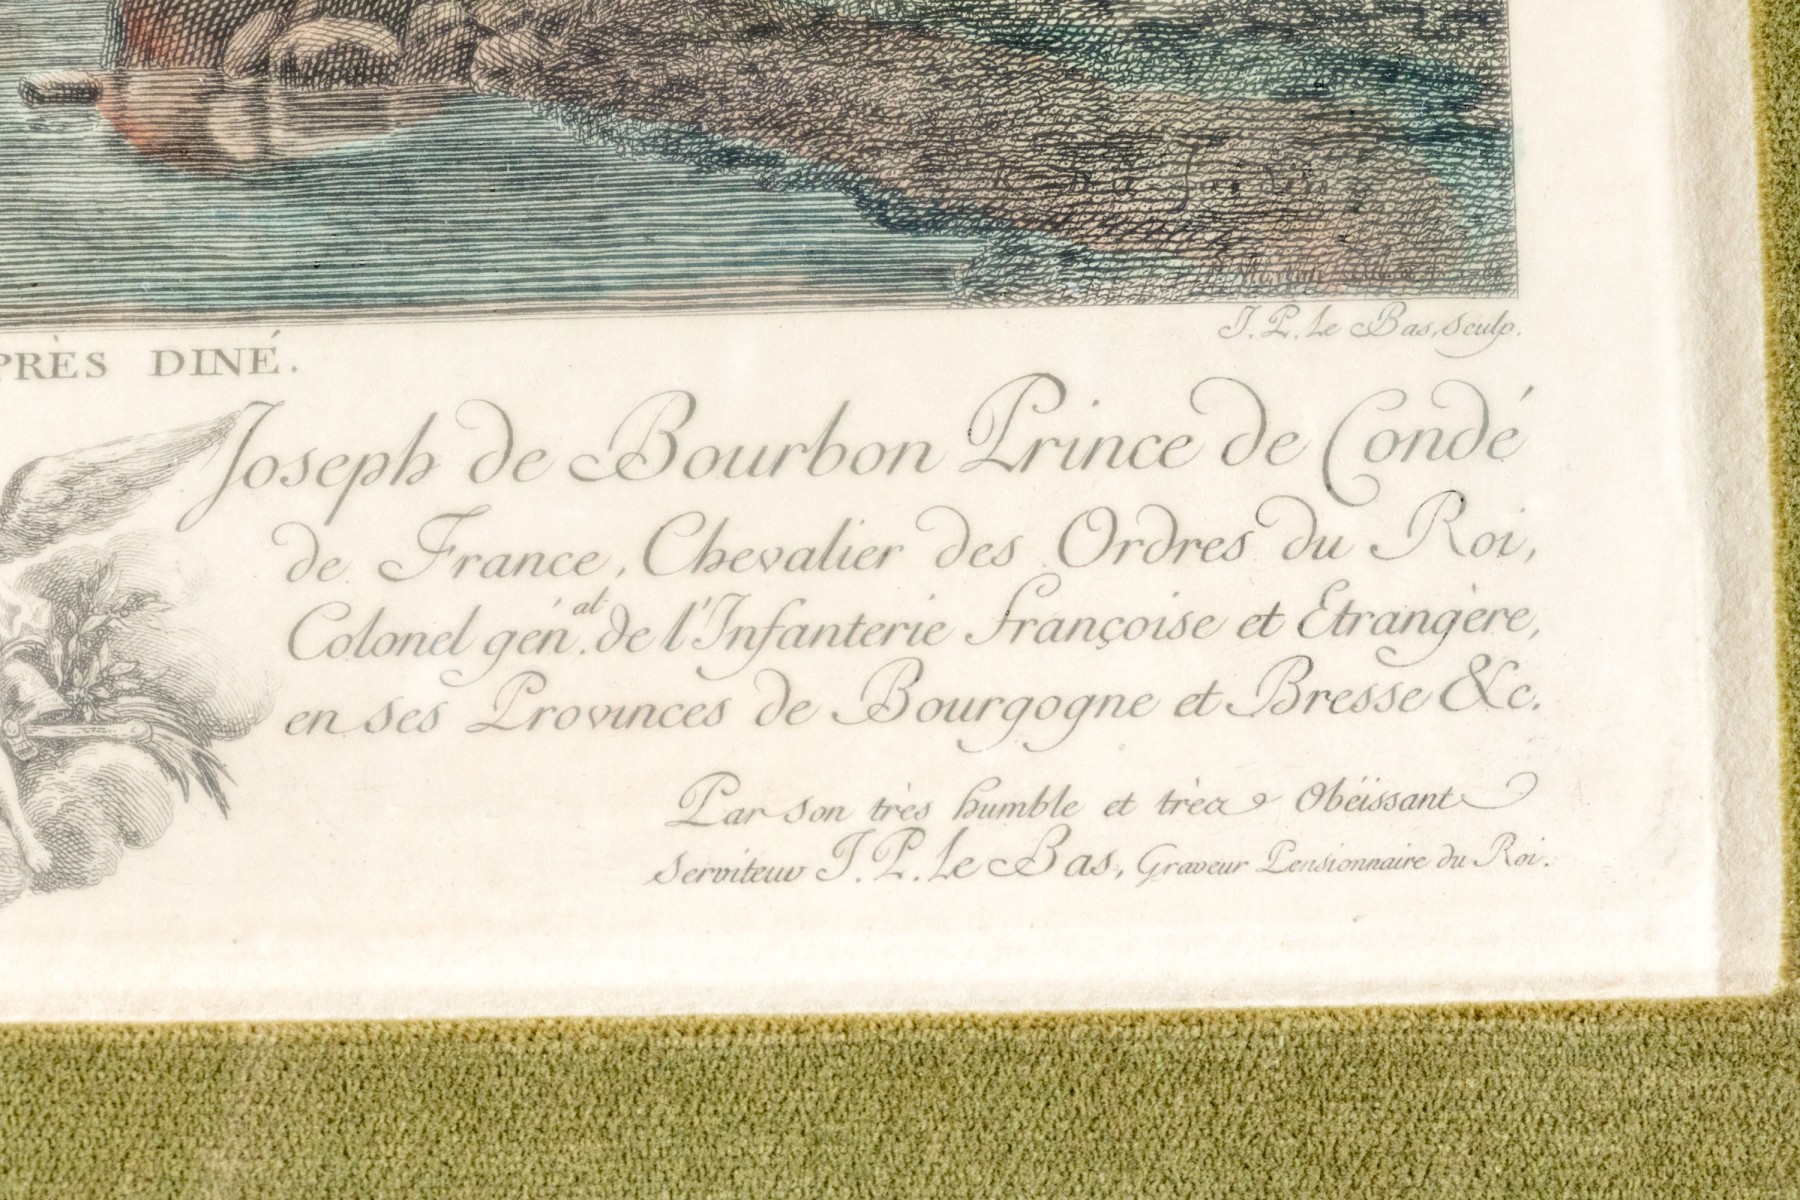 J. P. Le Bas, Sculp.
PRÈS DINÉ.
Joseph de Bourbon Prince de Condé
de France, Chevalier des Ordres du Roi,
Colonel gén.al de l'Infanterie françoise et Etrangère,
en ses Provinces de Bourgogne et Bresse &c.
Par son très humble et très Obéïssant
Serviteur J. P. Le Bas, Graveur Pensionnaire du Roi.